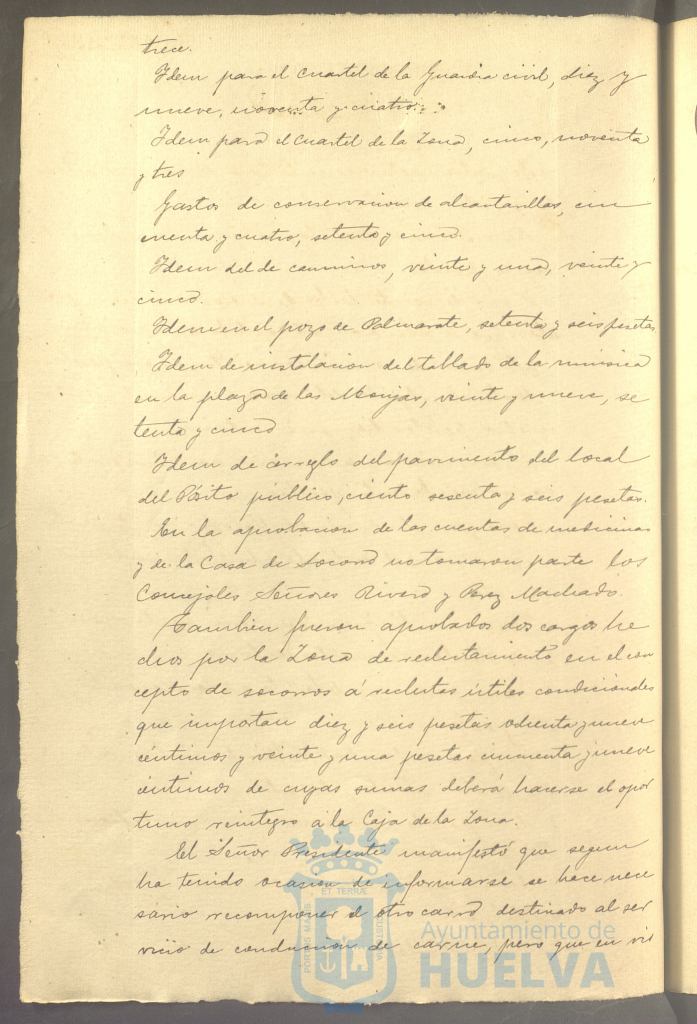 trece.
Idem para el cuartel de la Guardia civil, diez y
nueve, noventa y cuatro.
Idem para el cuartel de la Zona, cinco, noventa
y tres
Gastos de conservacion de alcantarillas, cin
cuenta y cuatro, setenta y cinco.
Idem del de caminos, veinte y una, veinte y
cinco.
Idem en el pozo de Palmarete, setenta y seis pesetas
Idem de instalacion del tablado de la musica
en la plaza de las Monjas, veinte y nueve, se
tenta y cinco
Idem de arreglo del pavimento del local
del Pósito público, ciento sesenta y seis pesetas.
En la aprobacion de las cuentas de medicinas
y de la Casa de Socorro no tomaron parte los
Concejales Señores Rivero y Perez Machado.
Tambien fueron aprobados dos cargos he
chos por la Zona de reclutamiento en el con
cepto de socorros á reclutas útiles condicionales
que importan diez y seis pesetas ochenta y nueve
céntimos y veinte y una pesetas cincuenta y nueve
céntimos de cuyas sumas deberá hacerse el opor
tuno reintegro á la Caja de la Zona.
El Señor Presidente manifestó que segun
ha tenido ocasion de informarse se hace nece
sario recomponer el otro carro destinado al ser
vicio de conduccion de carne, pero que en vis
ET TERRÆ
PORTUS MARIS
CUSTODIA
Ayuntamiento de
HUELVA